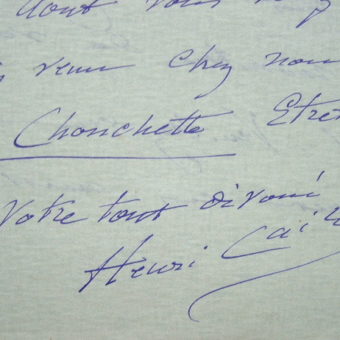 dont vous
venu chez nou
Chonchette Etre
Votre tout dévoué
Henri Cain